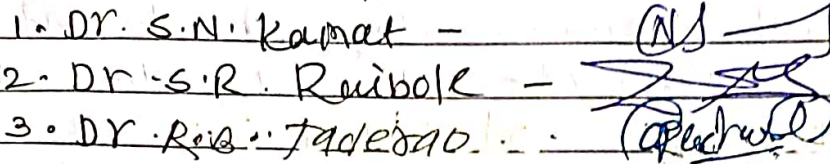 1. Dr. S.N. Kamat -
2. Dr. S.R. Raibole -
3. Dr. R.B. Jaderao